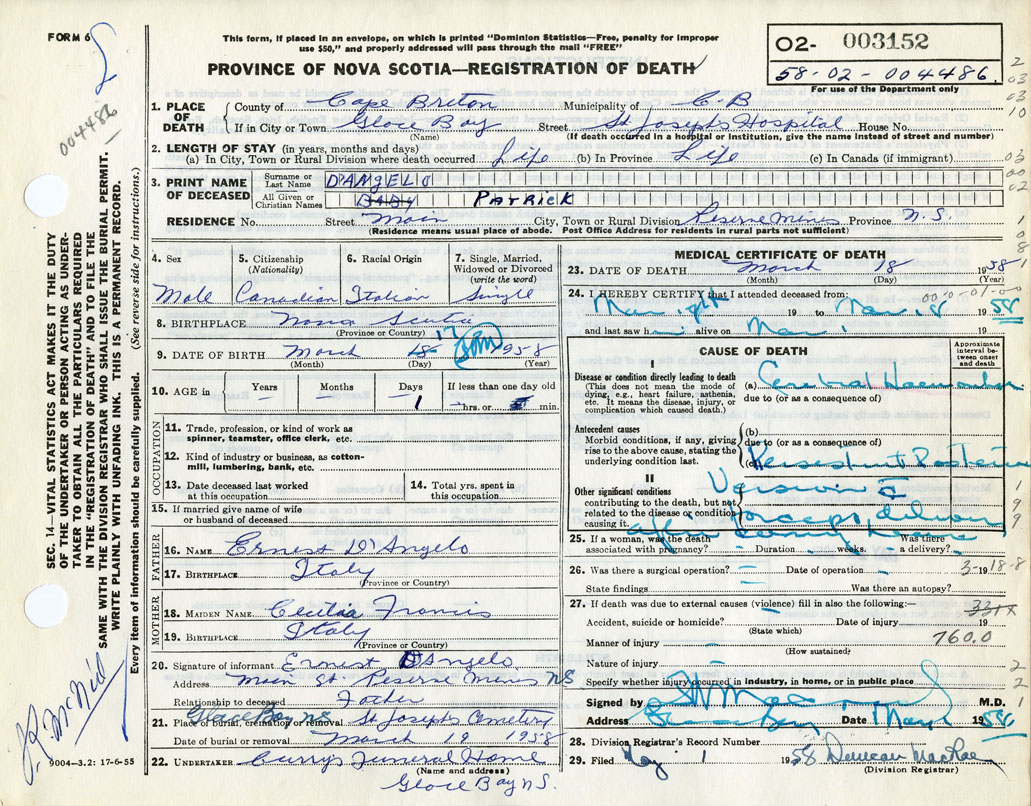 FORM 6
This form, if placed in an envelope, on which is printed "Dominion Statistics—Free, penalty for improper
use $50," and properly addressed will pass through the mail "FREE"
PROVINCE OF NOVA SCOTIA—REGISTRATION OF DEATH
02- 003152
58-02-004486.
For use of the Department only
004486
1. PLACE OF DEATH
County of Cape Breton Municipality of C-B
If in City or Town Glace Bay Street St Josephs Hospital House No.
(Name) (If death occurred in a hospital or institution, give the name instead of street and number)
2. LENGTH OF STAY (in years, months and days)
(a) In City, Town or Rural Division where death occurred Life (b) In Province Life (c) In Canada (if immigrant)
3. PRINT NAME OF DECEASED
Surname or Last Name D'ANGELO
All Given or Christian Names BABY PATRICK
RESIDENCE No. Street Main City, Town or Rural Division Reserve Mines Province N.S.
(Residence means usual place of abode. Post Office Address for residents in rural parts not sufficient)
4. Sex
Male
5. Citizenship (Nationality)
Canadian
6. Racial Origin
Italian
7. Single, Married, Widowed or Divorced (write the word)
Single
8. BIRTHPLACE Nova Scotia
(Province or Country)
9. DATE OF BIRTH March 18 17 1958
(Month) (Day) (Year)
10. AGE in Years Months Days If less than one day old
1 hrs. or min.
OCCUPATION
11. Trade, profession, or kind of work as spinner, teamster, office clerk, etc.
12. Kind of industry or business, as cotton-mill, lumbering, bank, etc.
13. Date deceased last worked at this occupation
14. Total yrs. spent in this occupation
15. If married give name of wife or husband of deceased
FATHER
16. NAME Ernest D'Angelo
17. BIRTHPLACE Italy
(Province or Country)
MOTHER
18. MAIDEN NAME Cecilia Francis
19. BIRTHPLACE Italy
(Province or Country)
20. Signature of informant Ernest D'Angelo
Address Main St. Reserve Mines NS
Relationship to deceased Father
21. Place of burial, cremation or removal Glace Bay NS St Josephs Cemetery
Date of burial or removal March 19 1958
22. UNDERTAKER Currys Funeral Home
(Name and address)
Glace Bay N.S.
MEDICAL CERTIFICATE OF DEATH
23. DATE OF DEATH March 18 1958
(Month) (Day) (Year)
24. I HEREBY CERTIFY that I attended deceased from:
19 to Mar. 18 1958
and last saw h alive on Mar. 19
CAUSE OF DEATH
Approximate interval between onset and death
I
Disease or condition directly leading to death
(This does not mean the mode of dying, e.g., heart failure, asthenia, etc. It means the disease, injury, or complication which caused death.)
(a) Cerebral Haemorrhage
due to (or as a consequence of)
Antecedent causes
Morbid conditions, if any, giving rise to the above cause, stating the underlying condition last.
(b)
due to (or as a consequence of)
(c) Persistent Posterior
II
Other significant conditions contributing to the death, but not related to the disease or condition causing it.
Version &
forceps delivery
after
25. If a woman, was the death associated with pregnancy? Duration weeks. Was there a delivery?
26. Was there a surgical operation? Date of operation 19
State findings Was there an autopsy?
27. If death was due to external causes (violence) fill in also the following:—
Accident, suicide or homicide? Date of injury 19
(State which)
Manner of injury 760.0
(How sustained)
Nature of injury
Specify whether injury occurred in industry, in home, or in public place
Signed by M.D.
Address Glace Bay Date May 1 1958
28. Division Registrar's Record Number
29. Filed May 1 1958 Duncan MacRae
(Division Registrar)
SEC. 14—VITAL STATISTICS ACT MAKES IT THE DUTY
OF THE UNDERTAKER OR PERSON ACTING AS UNDER-
TAKER TO OBTAIN ALL THE PARTICULARS REQUIRED
IN THE "REGISTRATION OF DEATH" AND TO FILE THE
SAME WITH THE DIVISION REGISTRAR WHO SHALL ISSUE THE BURIAL PERMIT.
WRITE PLAINLY WITH UNFADING INK. THIS IS A PERMANENT RECORD.
Every item of information should be carefully supplied. (See reverse side for instructions.)
9004—3.2: 17-6-55